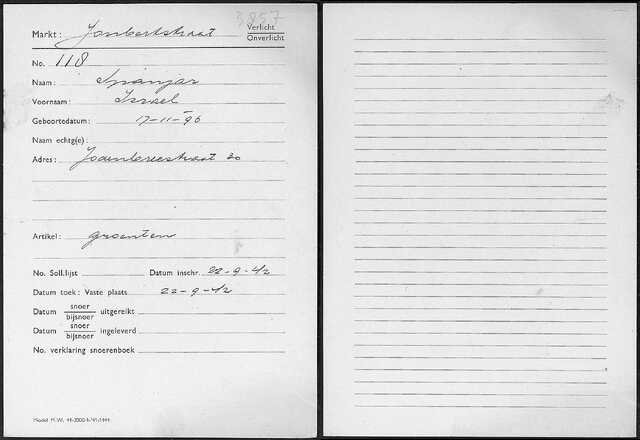 3857
Markt: Joubertstraat Verlicht
Onverlicht
No. 118
Naam: Spanjar
Voornaam: Israel
Geboortedatum: 17-11-96
Naam echtg(e):
Adres: Jodenbreestraat 20
Artikel: groenten
No. Soll.lijst Datum inschr. 22-9-42
Datum toek: Vaste plaats 22-9-42
Datum snoer
bijsnoer uitgereikt
Datum snoer
bijsnoer ingeleverd
No. verklaring snoerenboek
Model M.W.